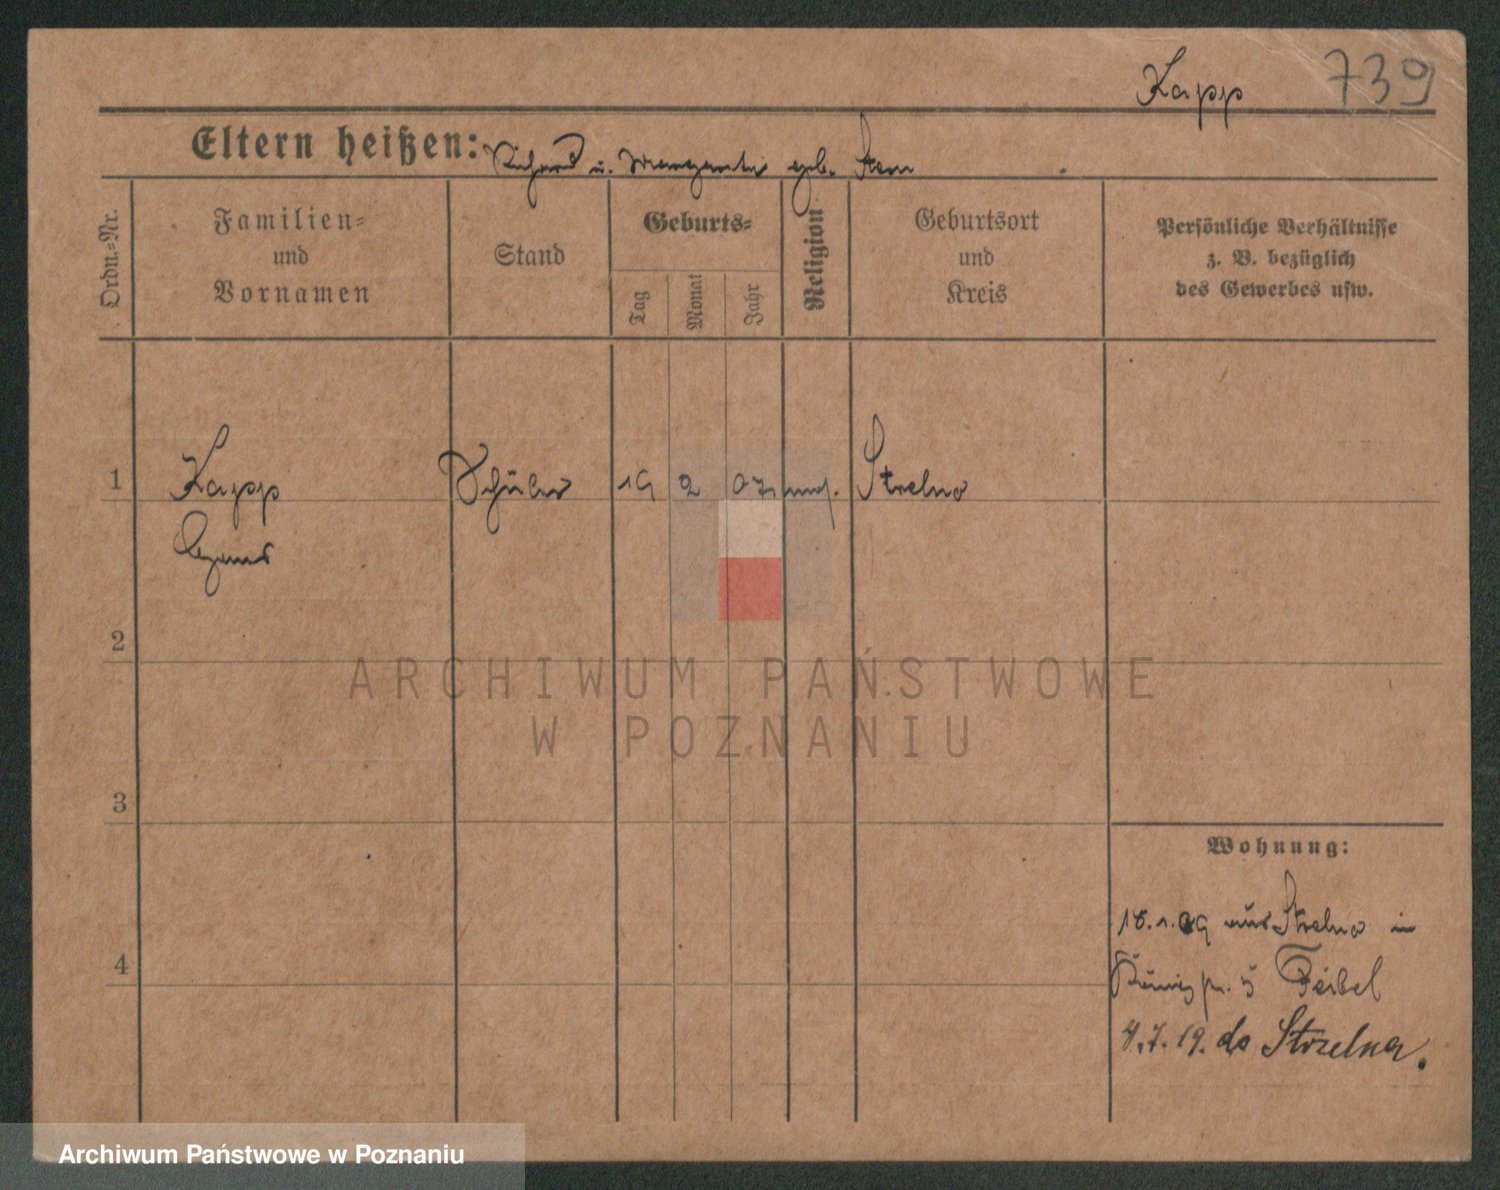 Kapp
739
Eltern heißen: Richard u. Margarete geb. Stern
Ordn.=Nr.
Familien=
und
Vornamen
Stand
Geburts=
Tag
Monat
Jahr
Religion
Geburtsort
und
Kreis
Persönliche Verhältnisse
z. B. bezüglich
des Gewerbes usw.
1
Kapp Schüler 19 2 07 mos. Strelno
2
3
4
Wohnung:
aus Strelno in
5 Feibel
4.7.19. do Strzelna.
ARCHIWUM PAŃSTWOWE
W POZNANIU
Archiwum Państwowe w Poznaniu